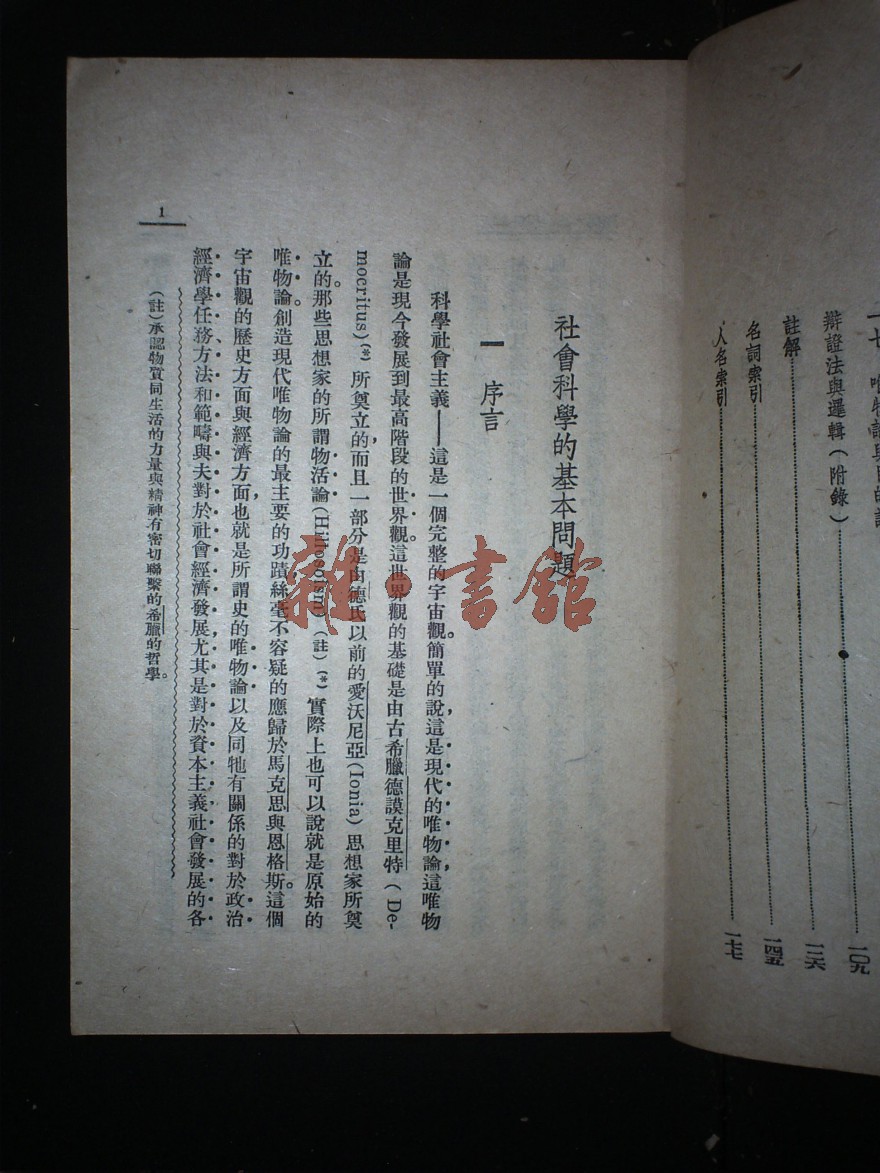 辯證法與邏輯(附錄)……一〇九
註解……一三六
名詞索引……一四五
人名索引……一七七
社會科學的基本問題
一 序言
科學社會主義——這是一個完整的宇宙觀。簡單的說,這是現代的唯物論,這唯物
論是現今發展到最高階段的世界觀。這世界觀的基礎是由古希臘德謨克里特(De-
mocritus)(*)所奠立的,而且一部分是由德氏以前的愛沃尼亞(Ionia)思想家所奠
立的。那些思想家的所謂物活論(Hillosoism)(註)(*)實際上也可以說就是原始的
唯物論。創造現代唯物論的最主要的功蹟絲毫不容疑的應歸於馬克思與恩格斯。這個
宇宙觀的歷史方面與經濟方面,也就是所謂史的唯物論以及同牠有關係的對於政治
經濟學任務、方法和範疇與夫對於社會經濟發展,尤其是對於資本主義社會發展的各
(註)承認物質同生活的力量與精神有密切聯繫的希臘的哲學。
1
雜·書館